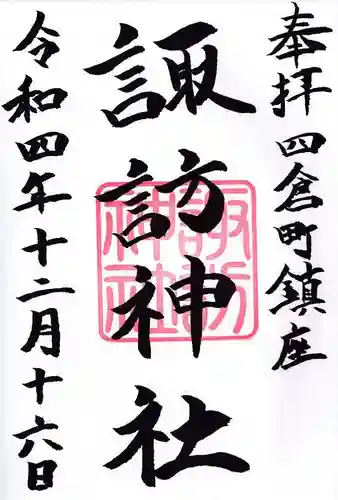 奉拝四倉町鎮座
諏訪神社
諏訪神社
令和四年十二月十六日